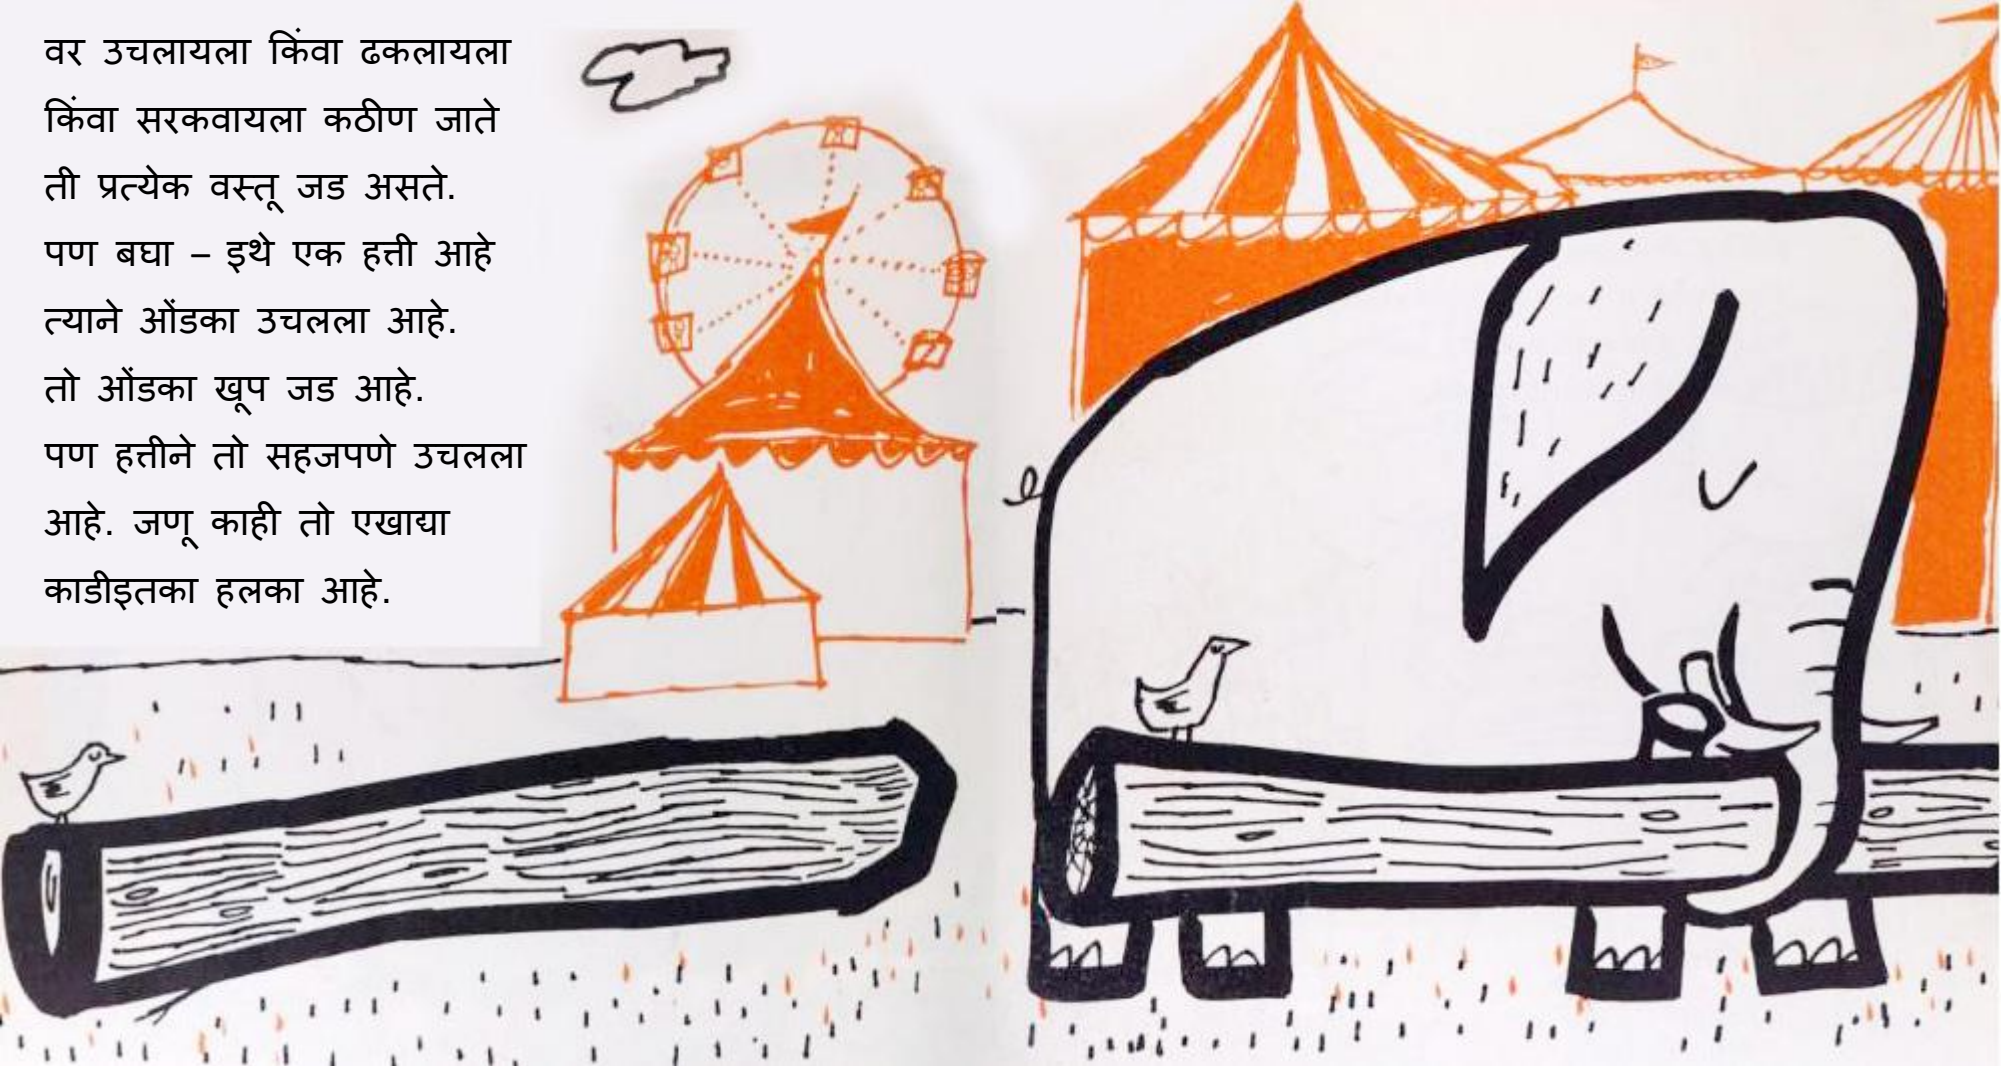 वर उचलायला किंवा ढकलायला
किंवा सरकवायला कठीण जाते
ती प्रत्येक वस्तू जड असते.
पण बघा – इथे एक हत्ती आहे
त्याने ओंडका उचलला आहे.
तो ओंडका खूप जड आहे.
पण हत्तीने तो सहजपणे उचलला
आहे. जणू काही तो एखाद्या
काडीइतका हलका आहे.